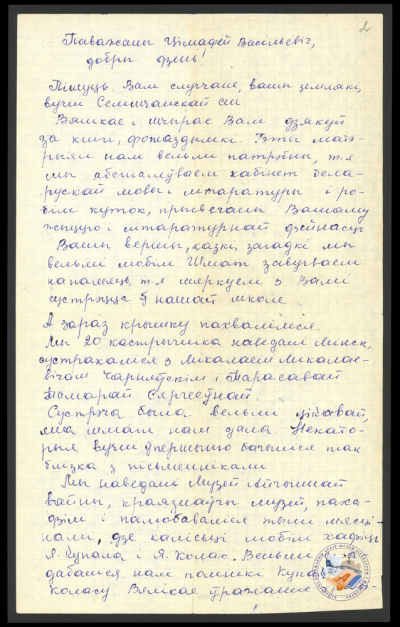 2
Паважаны Цімафей Васільевіч,
добры дзень!
Пішуць Вам случчане, вашы землякі,
вучні Семежаўскай сш.
Вялікае і шчырае Вам дзякуй
за кнігі, фотаздымкі. Гэты матэ-
рыял нам вельмі патрэбны, т.я
мы абсталёўваем кабінет бела-
рускай мовы і літаратуры і ро-
бім куток, прысвечаны Вашаму
жыццю і літаратурнай дзейнасці
Вашы вершы, казкі, загадкі мы
вельмі любім. Шмат завучваем
на памяць, т.я мяркуем з Вамі
сустрэцца ў нашай школе
А зараз крышку пахвалімся.
Мы 20 кастрычніка наведалі Мінск,
сустракаліся з Міколаем Мікалае-
вічам Чарняўскім і Тарасавай
Тамарай Сяргееўнай.
Сустрэча была вельмі цікавай,
яна шмат нам дала. Некато-
рыя вучні ўпершыню бачыліся так
блізка з пісьменнікамі
Мы наведалі музей Айчыннай
вайны, краязнаўчы музей, паха-
дзілі і палюбаваліся тымі мясці-
намі, дзе калісьці любілі хадзіць
Я. Купала і Я. Колас. Вельмі
дабаліся нам помнікі Купа
Коласу. Вялікае ўражанне